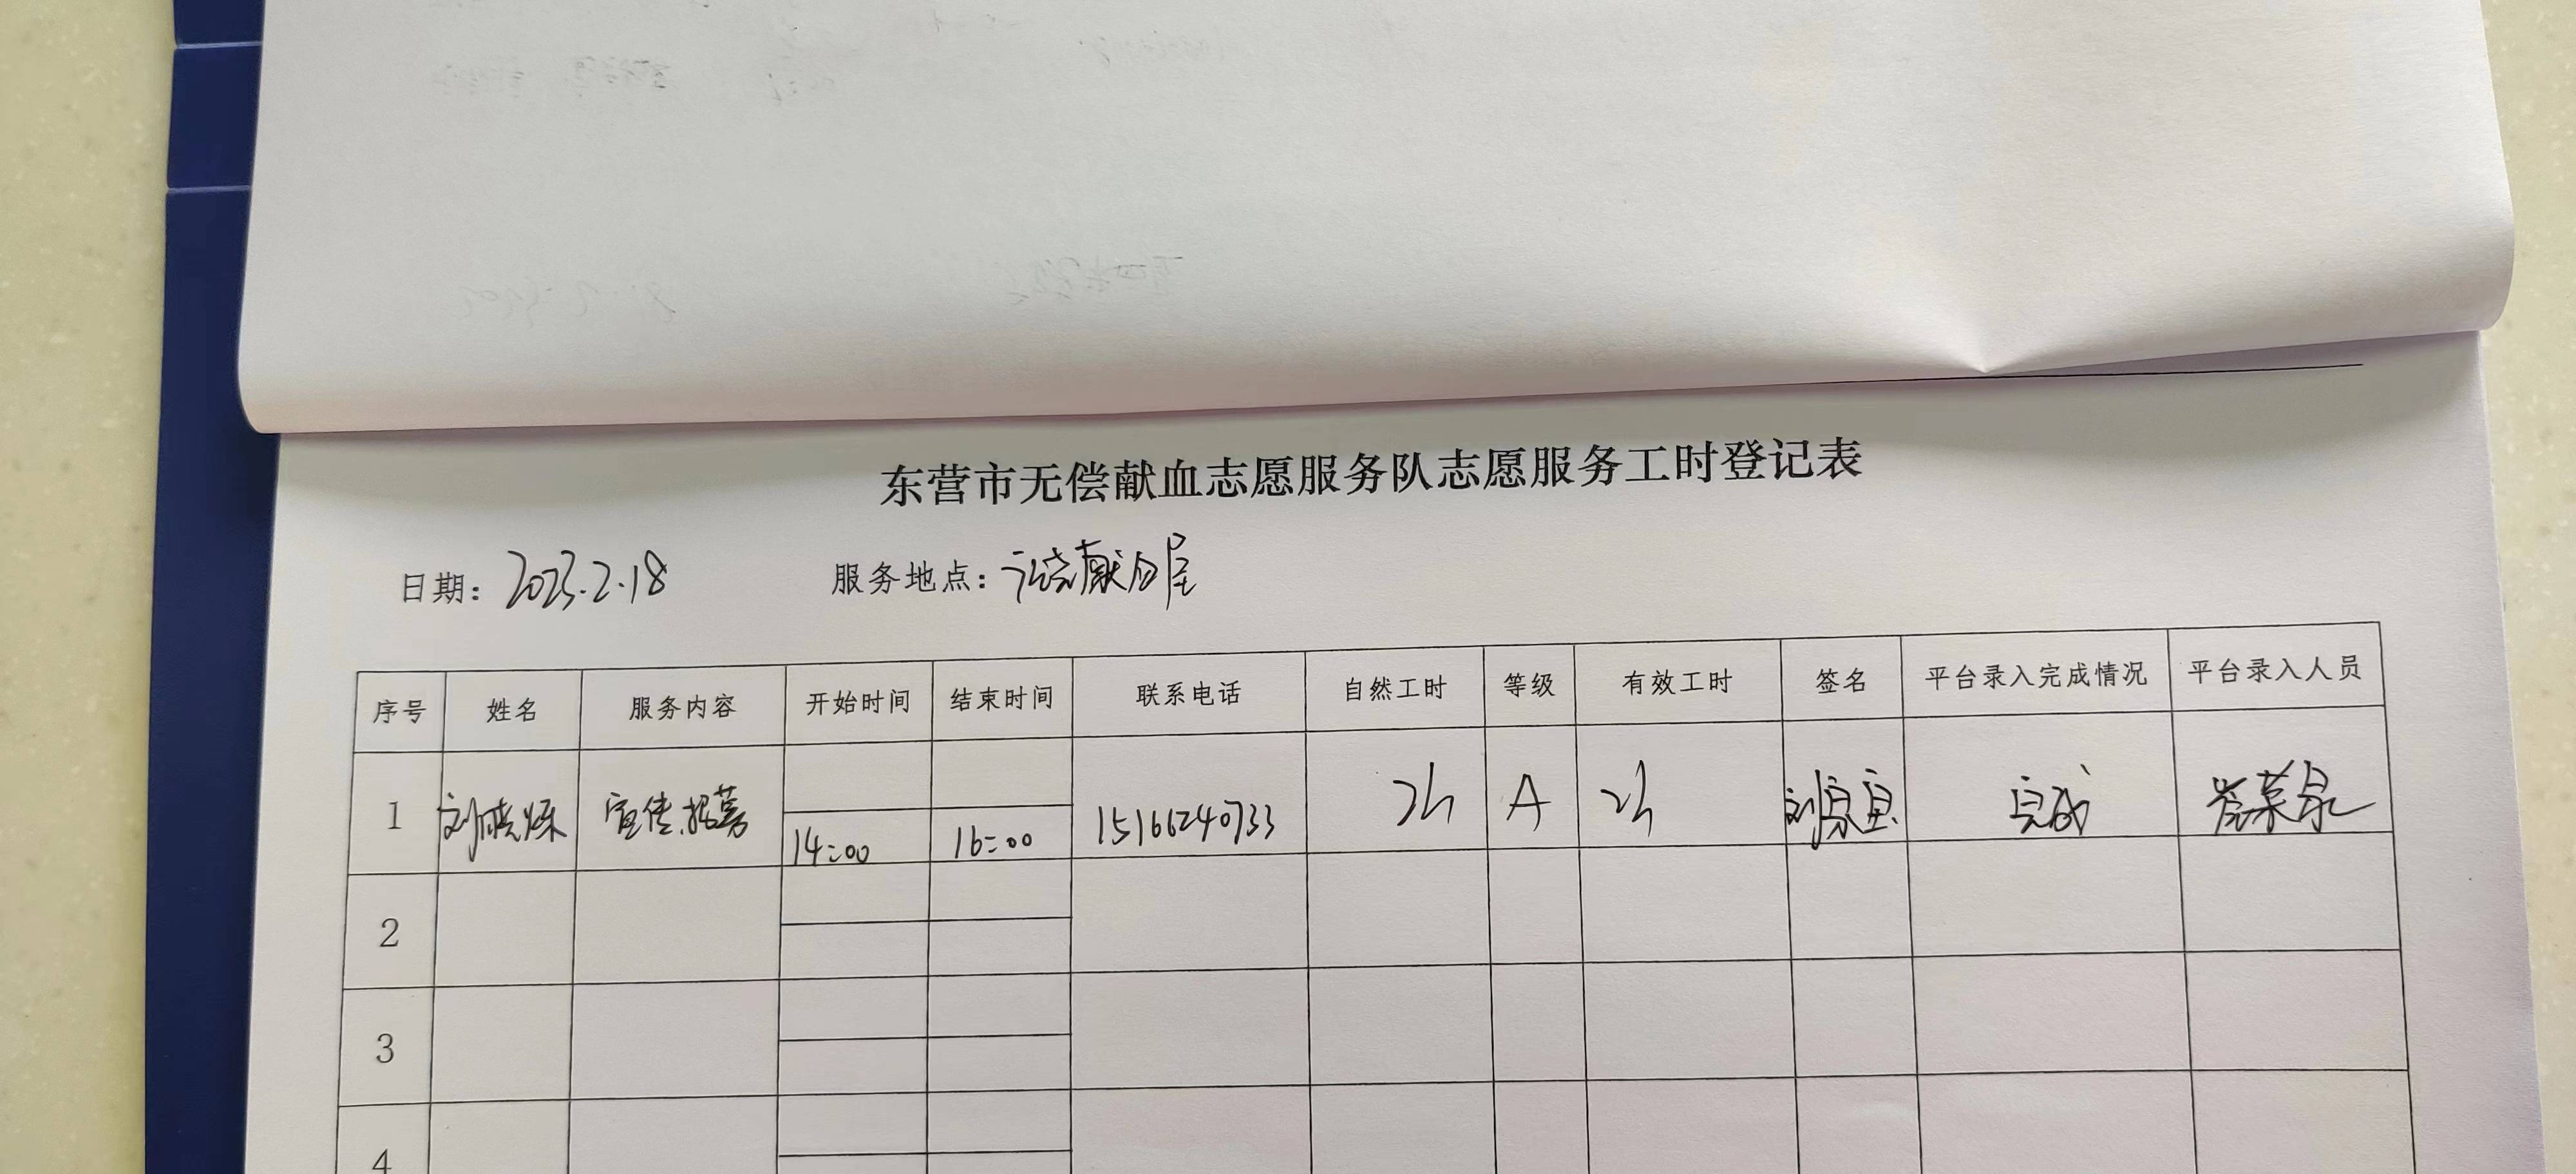 东营市无偿献血志愿服务队志愿服务工时登记表
日期: 2023.2.18 服务地点: 献血屋
序号 姓名 服务内容 开始时间 结束时间 联系电话 自然工时 等级 有效工时 签名 平台录入完成情况 平台录入人员
1 刘 宣传.招募 14:00 16:00 15166240733 2h A 2h 刘 完成
2
3
4